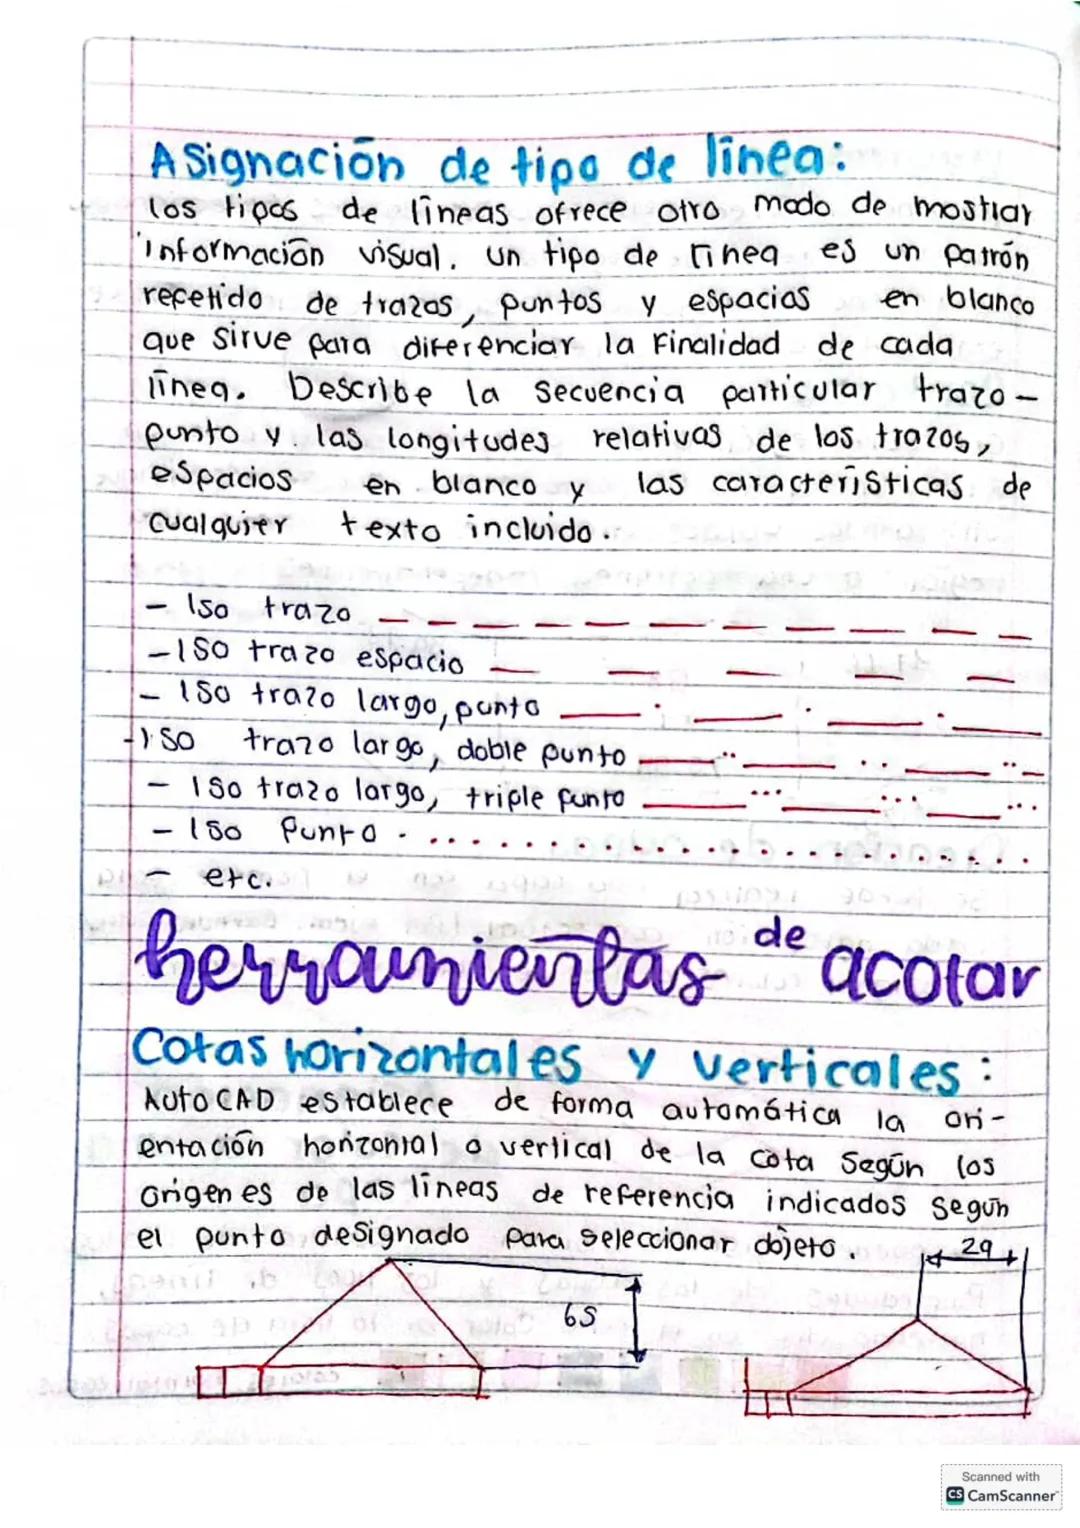 Asignación de tipo de línea:
los tipos de líneas ofrece otro modo de mostrar
información visual. un tipo de línea es un patrón
repetido de trazos, puntos y espacios en blanco
que sirve para diferenciar la Finalidad de cada
línea. Describe la secuencia particular trazo-
punto y las longitudes relativas de los trazos,
espacios en blanco y las características de
cualquier texto incluido.
- Iso trazo
- ISO trazo espacio
- ISO trazo largo, punto
- ISO trazo largo, doble punto
- ISO trazo largo, triple punto
- ISO Punto
- etc.
herramientas de acotar
Cotas horizontales y verticales:
AutoCAD establece de forma automática la ori-
entación horizontal o vertical de la cota según los
origenes de las líneas de referencia indicados según
el punto designado para seleccionar objeto.
29
65
Scanned with
CS CamScanner